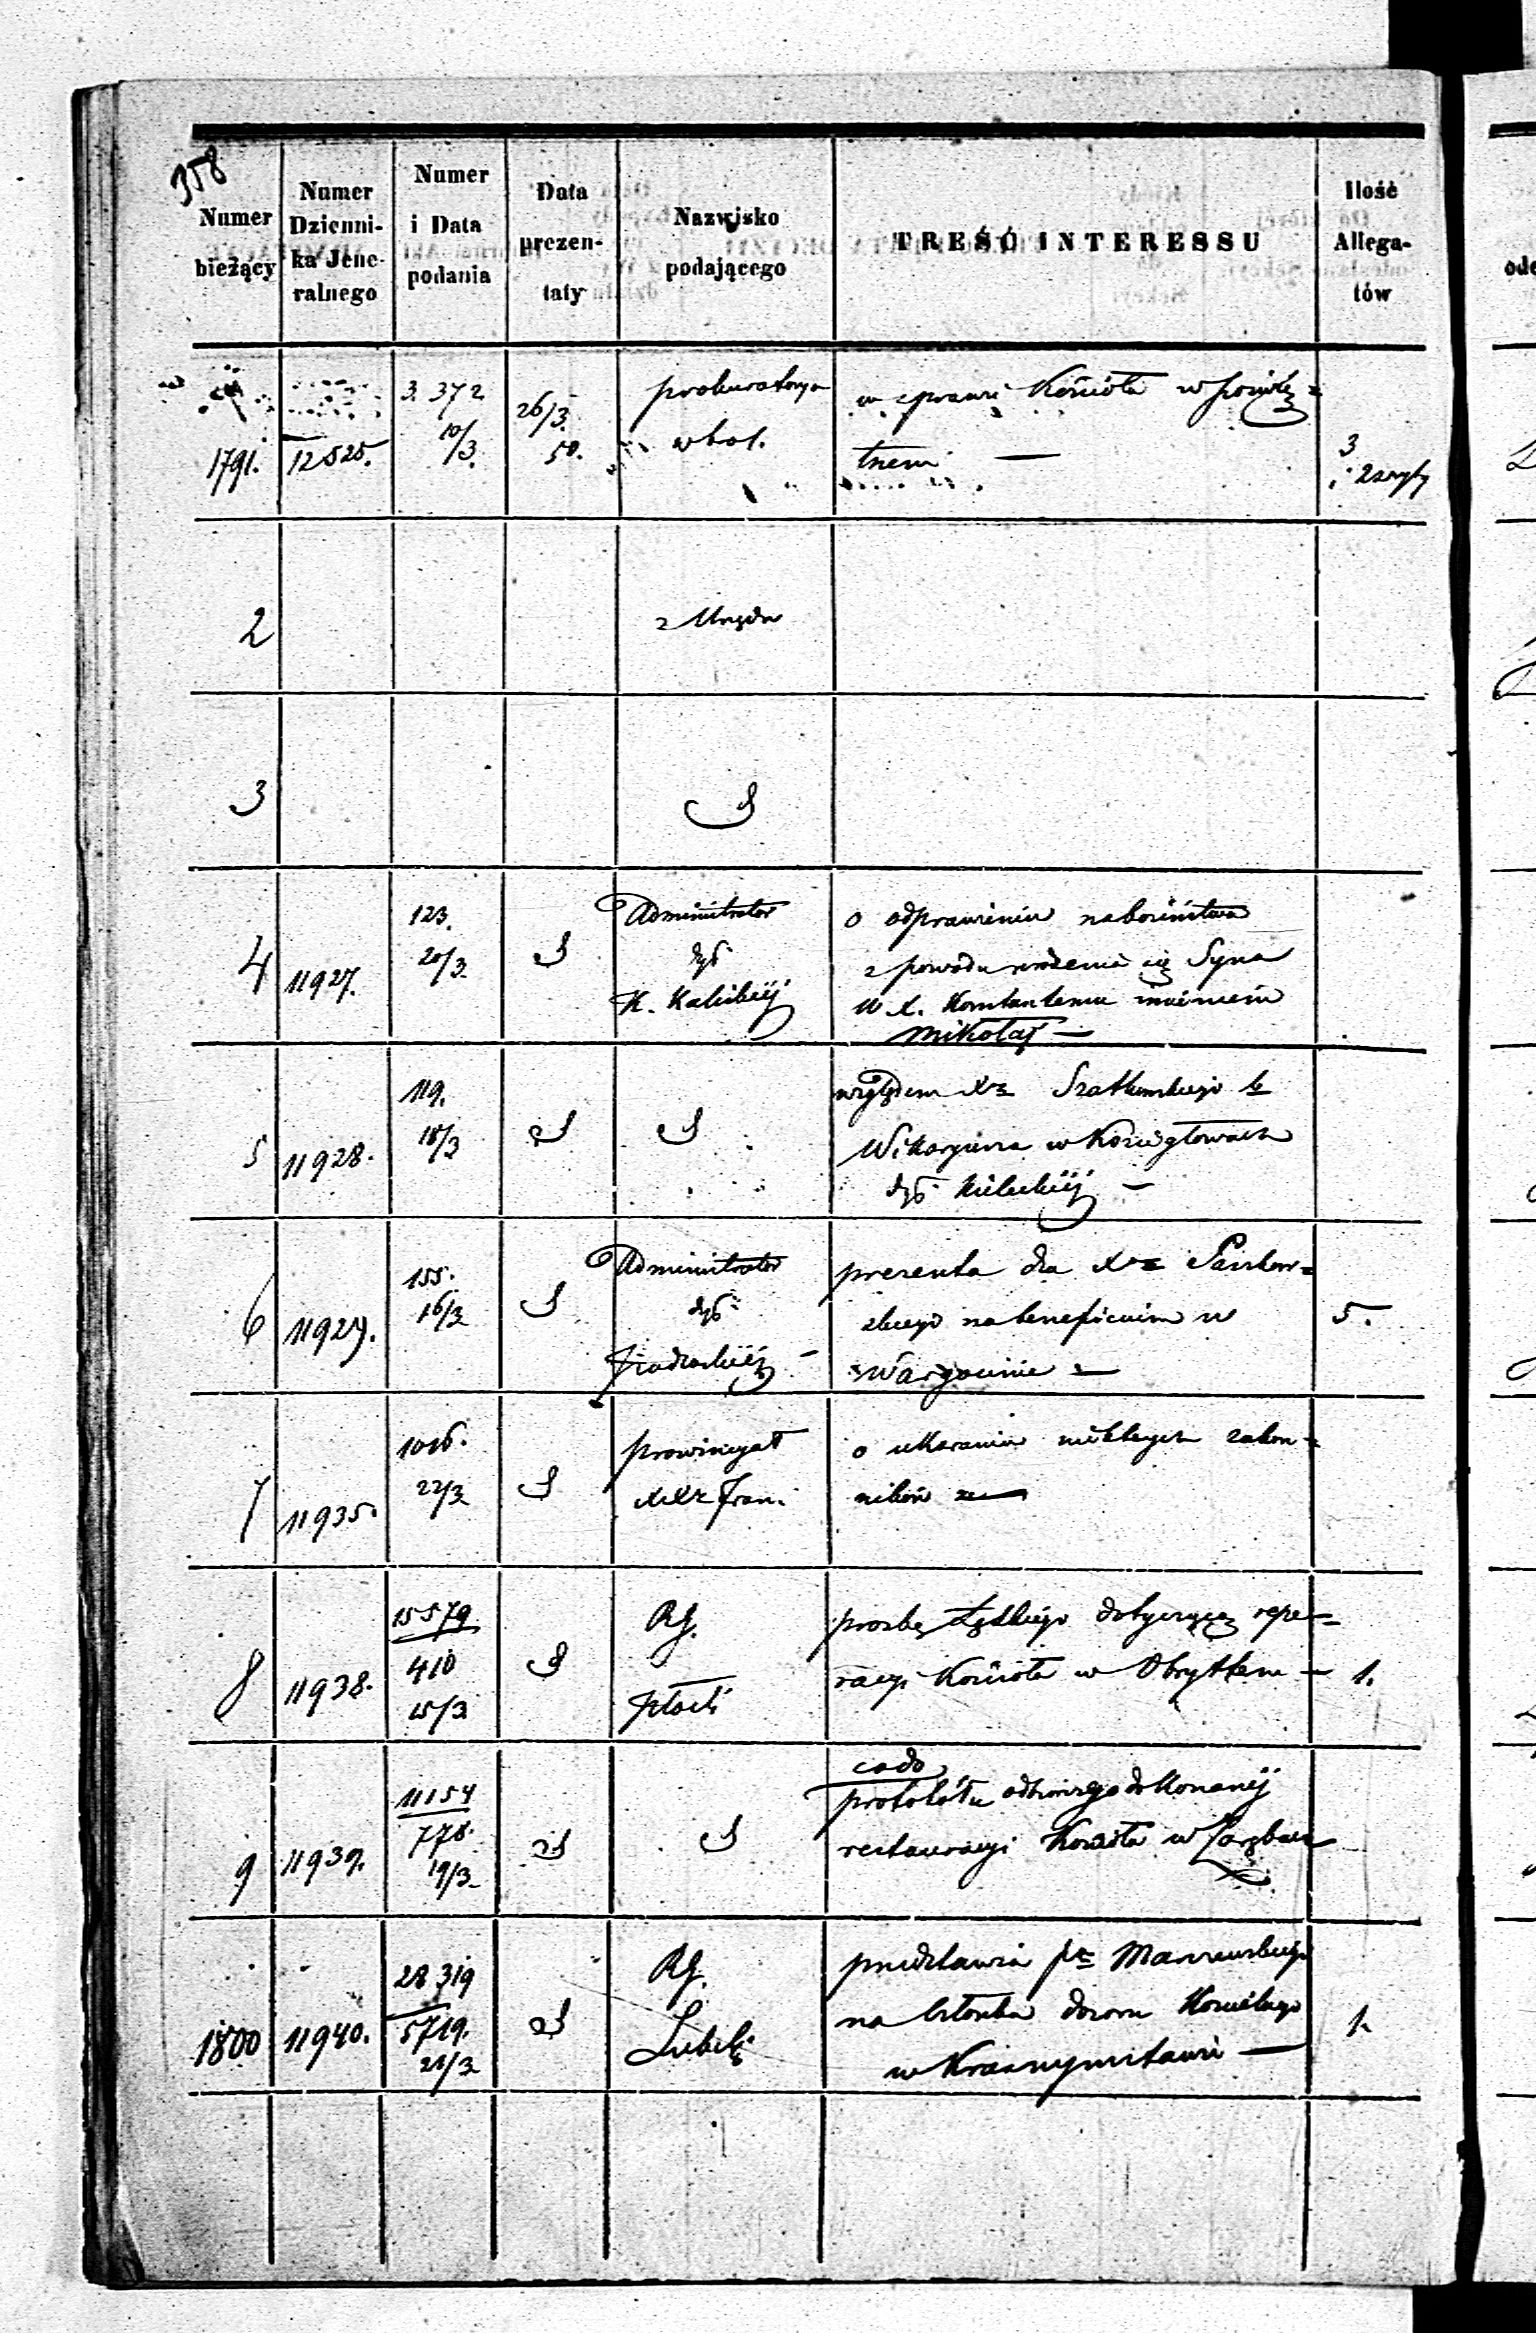 358
Numer bieżący
Numer Dzienni-ka Jene-ralnego
Numer i Data podania
Data prezen-taty
Nazwisko podającego
TREŚĆ INTERESSU
Ilość Allega-tów
1791. 12525. 3.372 10/3. 26/3. 50. prokuratorya w sprawie Kościoła w
3
2 z Urzędu
3
4 11927. 123. 20/3 Administrator
dyς K. Kaliskiej
o odprawieniu nabożeństwa
z powodu urodzenia się Syna
W. X. Konstantemu imieniem
Mikołaj —
5 11928. 119. 18/3
względem Xa Szatkowskiego
Wikaryusza w Koziegłowach
Kieleckiej —
6 11929. 155. 16/3 Administrator
prezenta dla Xa
na beneficium w
5.
7 11935. 1016. 22/3 prowincyał
XXX Fran.
o ukaraniu niektórych zakon-
ników
8 11938. 15579 410 15/3 RG.
Płocki
prośbę dotyczącą repe-
racyi Kościoła w Obrytem — 1.
9 11939. 11154 778. 19/3
co do
protokółu odbiorczego dokonanej
restauracyi Kościoła w Zarębach
1800 11940. 28319 5719. 21/3 RG.
Lubel.
przedstawia pa Marszewskiego
na członka dozoru Kościelnego
w Krasnymstawie —
1.